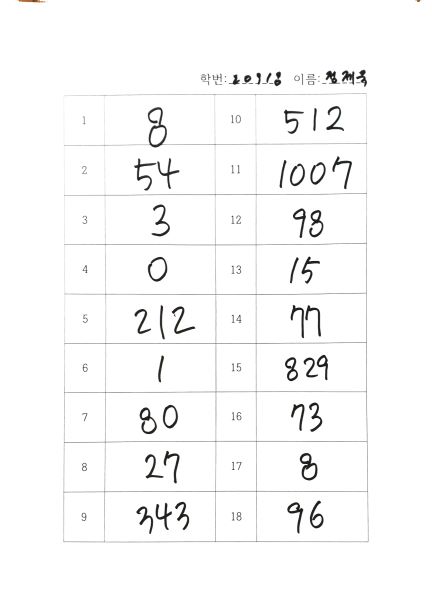 학번: 20918 이름: 정재욱
1 8 10 512
2 54 11 1007
3 3 12 98
4 0 13 15
5 212 14 77
6 1 15 829
7 80 16 73
8 27 17 8
9 343 18 96